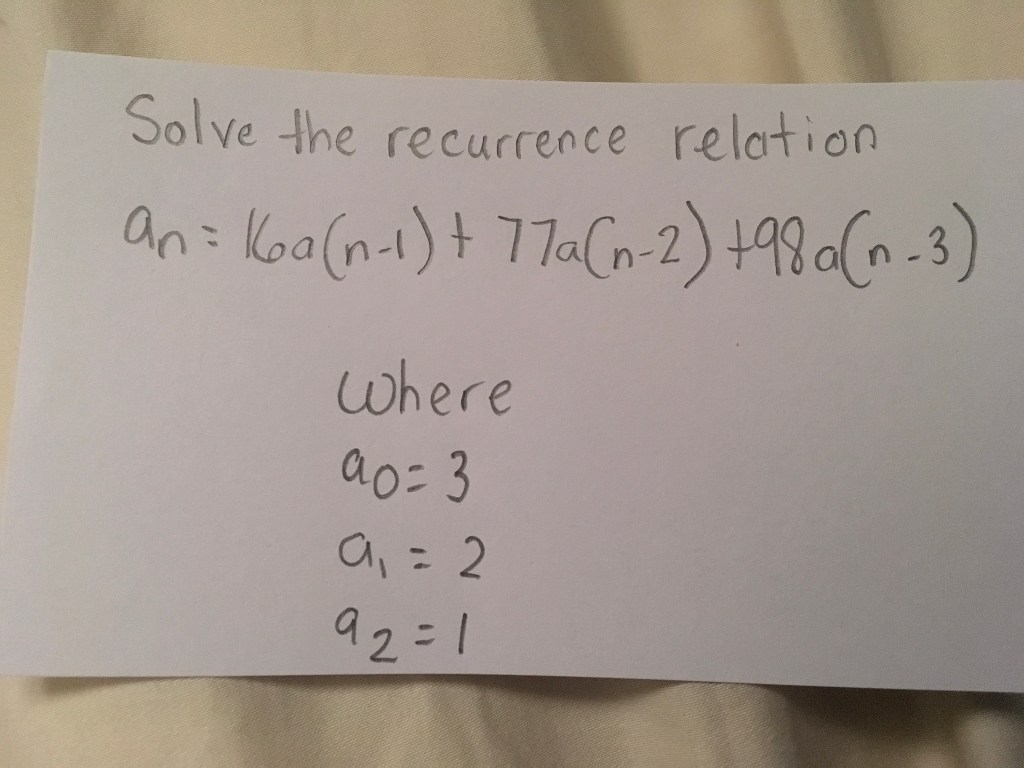 Solve the recurrence relation
an = 16a(n-1) + 77a(n-2) + 98a(n-3)
where
a0 = 3
a1 = 2
a2 = 1